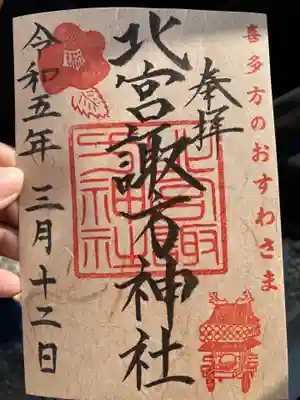 喜多方のおすわさま
奉拝
北宮諏方神社
令和五年 三月十二日
北宮諏方神社